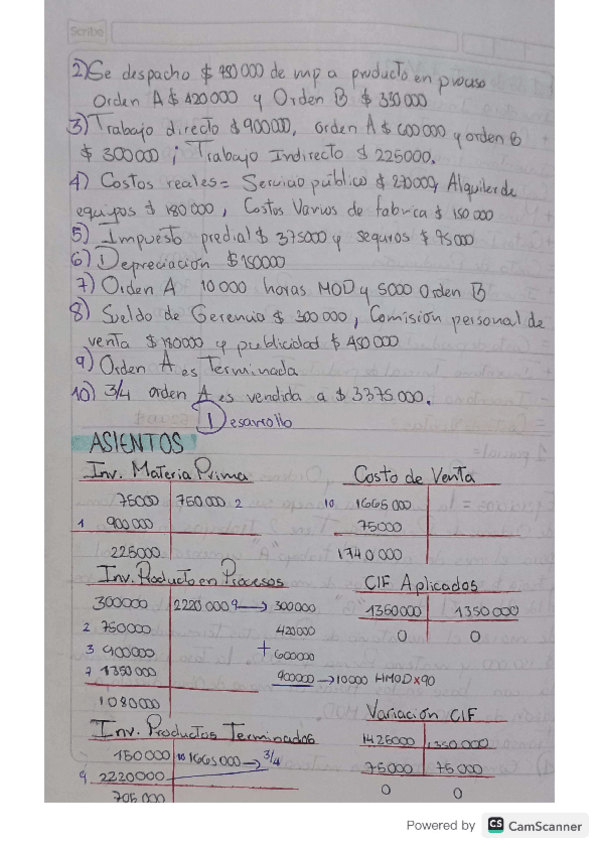 Scribe
2) Se despacho $ 750000 de mp a producto en proceso
Orden A $ 420000 y Orden B $ 330000
3) Trabajo directo $ 900000, orden A $ 600000 y orden B
$ 300000 ; Trabajo Indirecto $ 225000.
4) Costos reales = Servicio público $ 270000, Alquiler de
equipos $ 180000, Costos Varios de fabrica $ 150000
5) Impuesto predial $ 375000 y seguros $ 75000
6) Depreciación $ 150000
7) Orden A 10000 horas MOD y 5000 Orden B
8) Sueldo de Gerencia $ 300000, Comisión personal de
venta $ 180000 y publicidad $ 450000
9) Orden A es Terminada
10) 3/4 orden A es vendida a $ 3375000.
Desarrollo
ASIENTOS
Inv. Materia Prima
75000 750000 2
1 900000
225000
Costo de Venta
10 1665000
75000
1740000
Inv. Producto en Procesos
300000 2220000 9 → 300000
2 750000 420000
3 900000 + 600000
7 1350000 900000 → 10000 HMOD x 90
1080000
CIF Aplicados
1350000 1350000
0 0
Inv. Productos Terminados
150000 10 1665000 → 3/4
9 2220000
705000
Variación CIF
1425000 1350000
75000 75000
0 0
Powered by CS CamScanner